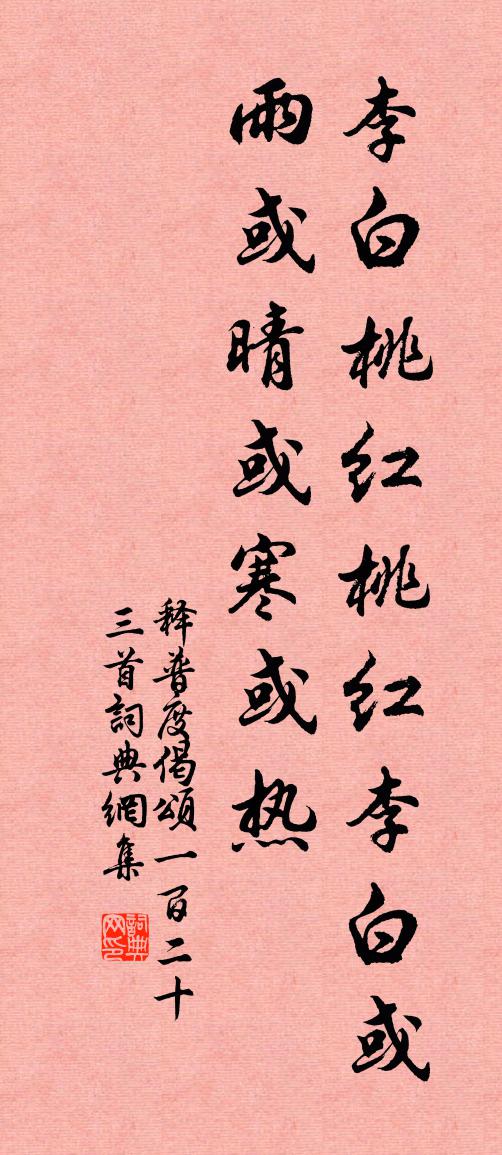 李白桃红桃红李白或
雨或晴或寒或热
释普度偈頌一百二十
三首詞典網集
詞典网印